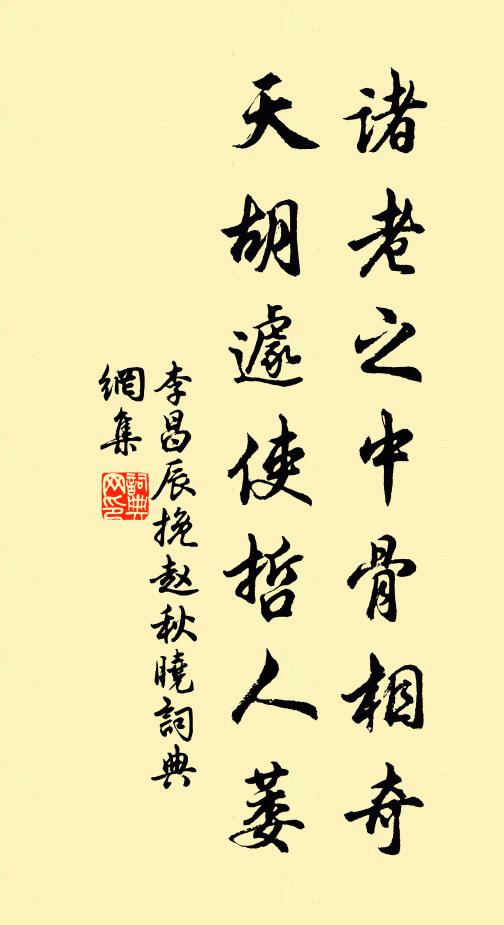 諸老之中骨相奇
天胡遽使哲人萎
李昌辰挽赵秋曉詞典
網集
詞典
网印